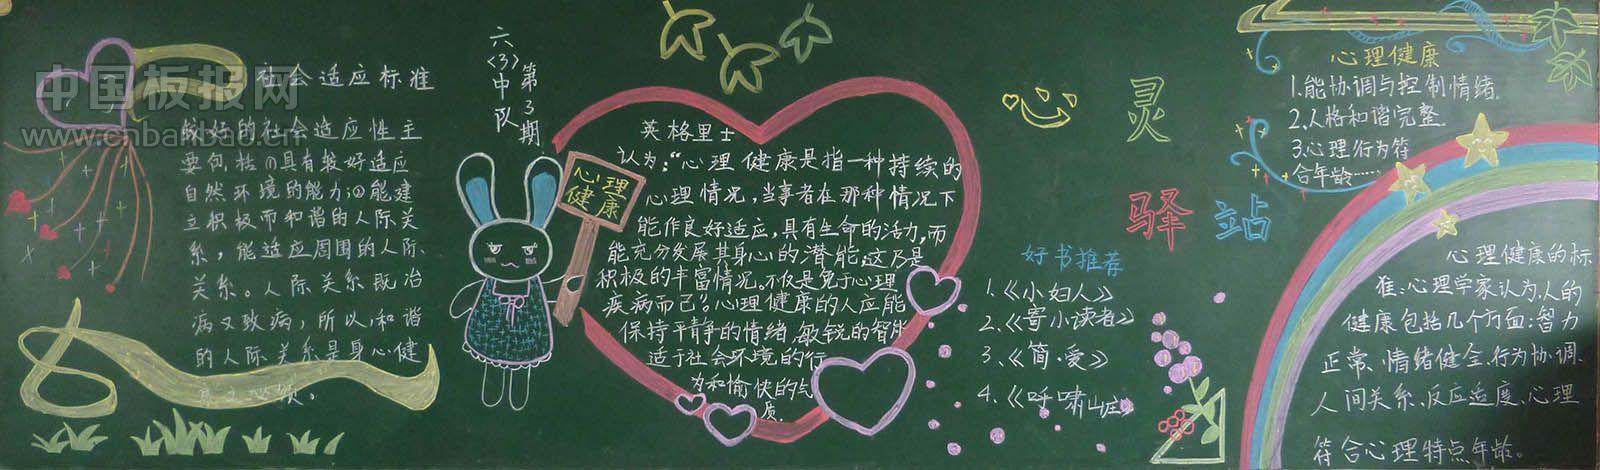 中国板报网
www.cnbanbao.cn
社会适应标准
较好的社会适应性主
要包括①具有较好适应
自然环境的能力②能建
立积极而和谐的人际关
系，能适应周围的人际
关系。人际关系既治
病又致病，所以和谐
的人际关系是身心健
六(3)中队
第3期
心理
健康
英格里士
认为："心理健康是指一种持续的
心理情况，当事者在那种情况下
能作良好适应，具有生命的活力，而
能充分发展其身心的潜能，这乃是
积极的丰富情况。不仅是免于心理
疾病而已？心理健康的人应能
保持平静的情绪，敏锐的智能
适于社会环境的行
为和愉快的气
质。
心灵
驿站
好书推荐
1.《小妇人》
2.《寄小读者》
3.《简·爱》
4.《呼啸山庄》
心理健康
1.能协调与控制情绪.
2.人格和谐完整.
3.心理行为符
合年龄……
心理健康的标
准：心理学家认为，人的
健康包括几个方面：智力
正常、情绪健全、行为协调、
人间关系、反应适度、心理
符合心理特点年龄。